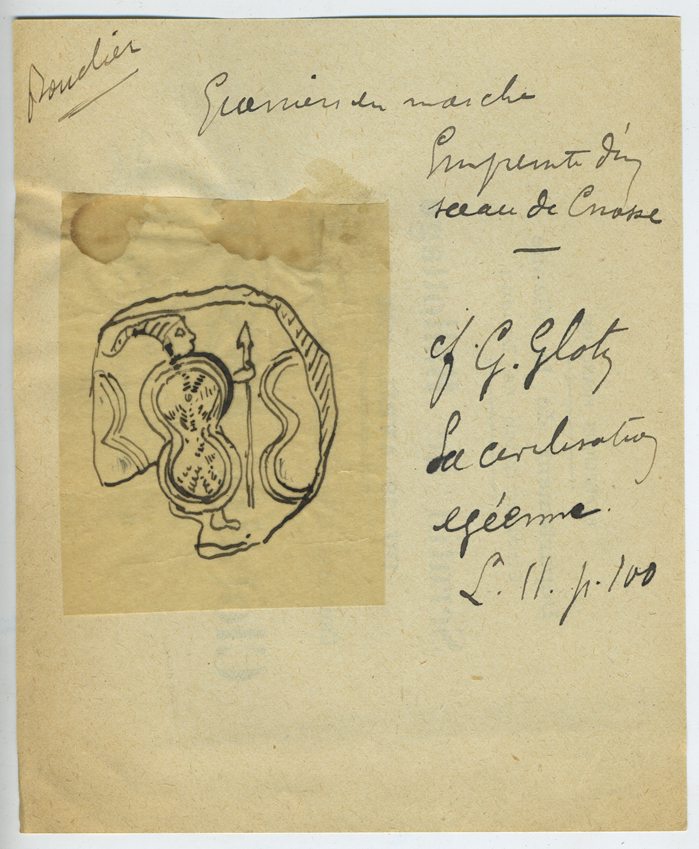 Bouclier
Guerriers en marche
Empreinte d'un
sceau de Cnosse
cf. G. Glotz
La civilisation
égéenne.
L. II. p. 100